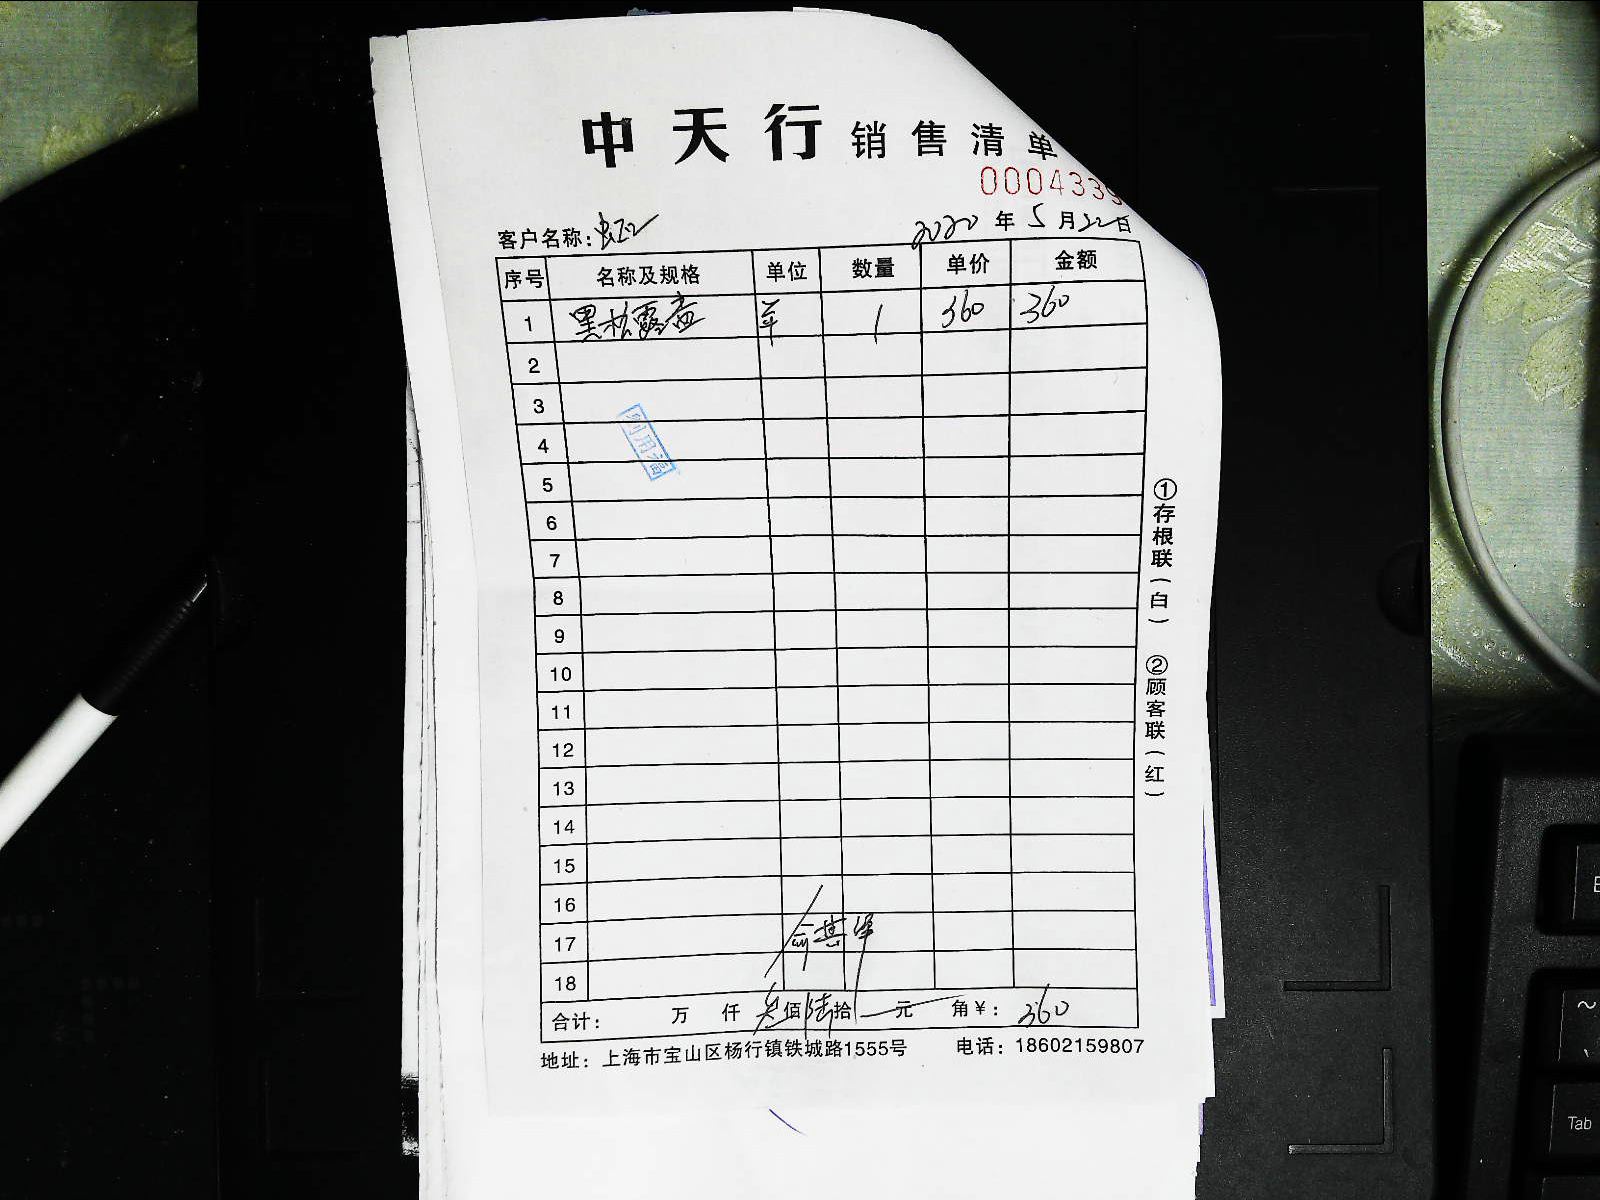 中天行 销售清单
000433
客户名称:
2020 年 5 月 22 日
序号 名称及规格 单位 数量 单价 金额
1 黑松露盒 1 360 360
2
3
4
5
6
7
8
9
10
11
12
13
14
15
16
17
18
合计: 万 仟 叁佰陆拾 元 角¥: 360
地址:上海市宝山区杨行镇铁城路1555号 电话:18602159807
①存根联(白) ②顾客联(红)
Tab